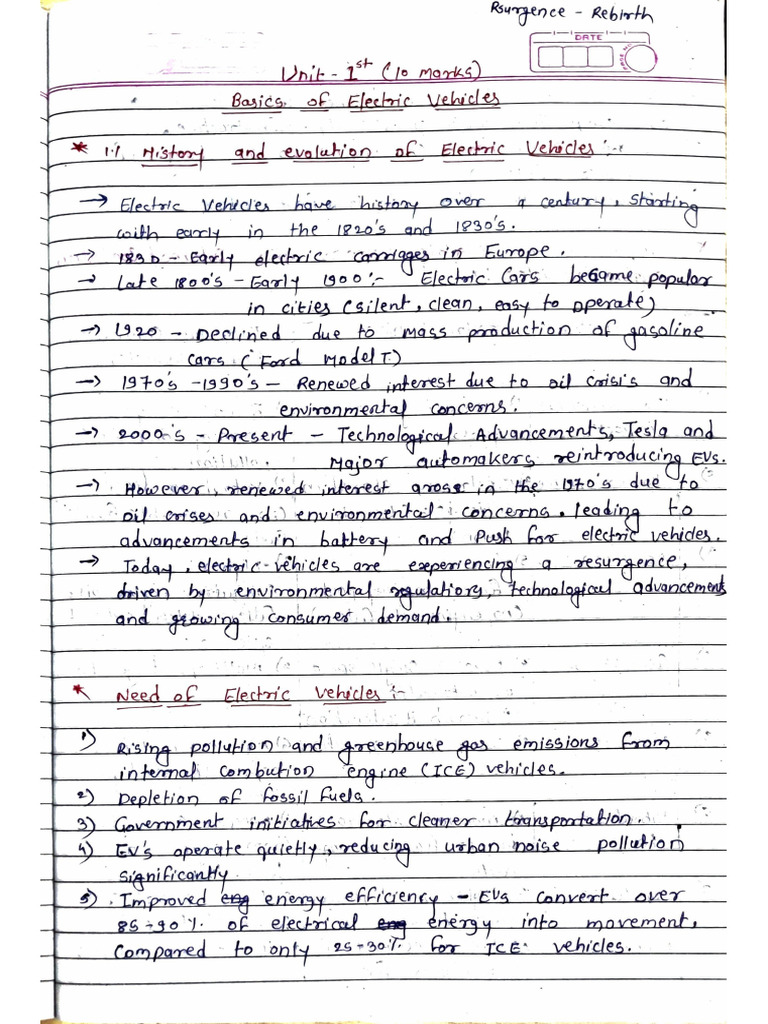 Rsurgence - Rebirth
DATE
Unit - 1st (10 marks)
Basics of Electric Vehicles
* 1.1 History and evolution of Electric Vehicles :-
→ Electric Vehicles have history over a century, starting
with early in the 1820's and 1830's.
→ 1830 - Early electric carriages in Europe.
→ Late 1800's - Early 1900 :- Electric Cars became popular
in cities (silent, clean, easy to operate)
→ 1920 - Declined due to mass production of gasoline
cars (Ford Model T.)
→ 1970's -1990's - Renewed interest due to oil crisis and
environmental concerns.
→ 2000's - Present - Technological Advancements, Tesla and
Major automakers reintroducing EVs.
→ However, renewed interest arose in the 1970's due to
oil crises and environmental concerns. leading to
advancements in battery and push for electric vehicles.
→ Today, electric-vehicles are experiencing a resurgence,
driven by environmental regulations, technological advancements
and growing consumer demand.
* Need of Electric Vehicles :-
1) Rising pollution and greenhouse gas emissions from
internal combution engine (ICE) vehicles.
2) Depletion of fossil fuels.
3) Government initiatives for cleaner transportation.
4) EV's operate quietly, reducing urban noise pollution
significantly.
5) Improved eng energy efficiency - EVs convert over
85-90% of electrical eng energy into movement,
compared to only 25-30% for ICE vehicles.